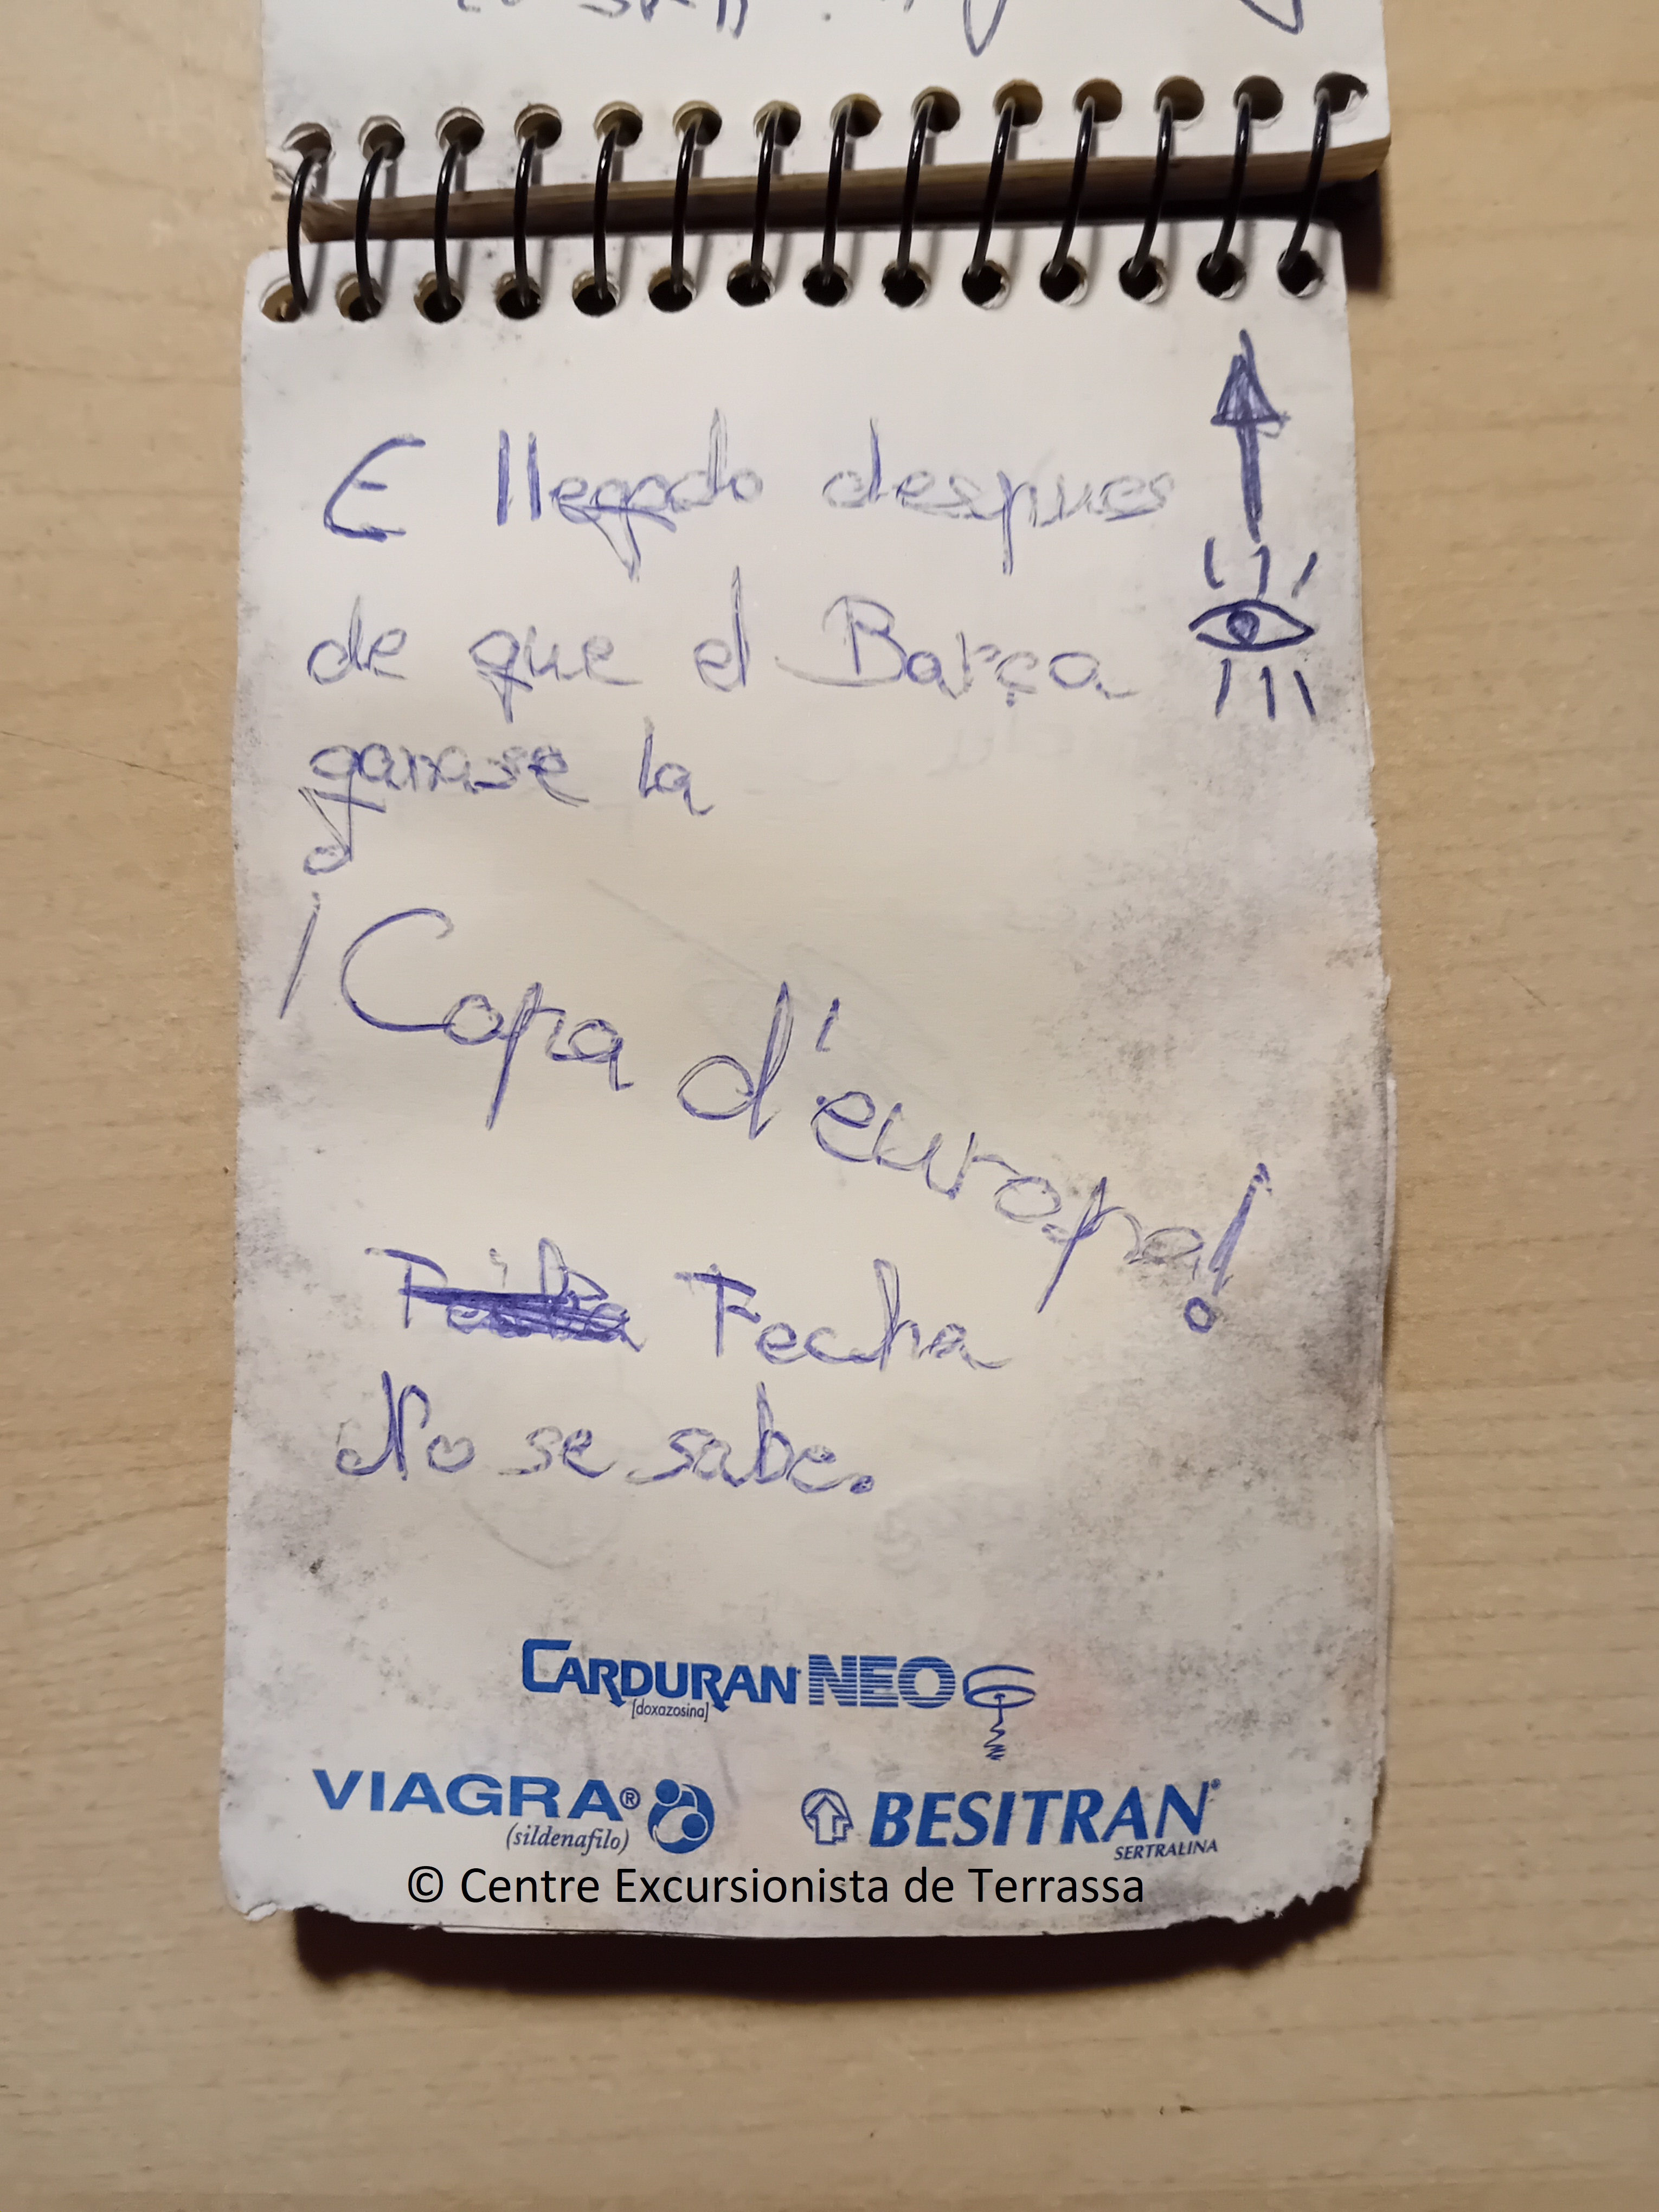 E llegado despues
de que el Barça
ganase la
¡Copa d'europa!
Fecha
No se sabe.
CARDURAN NEO
[doxazosina]
VIAGRA®
(sildenafilo)
BESITRAN®
SERTRALINA
© Centre Excursionista de Terrassa